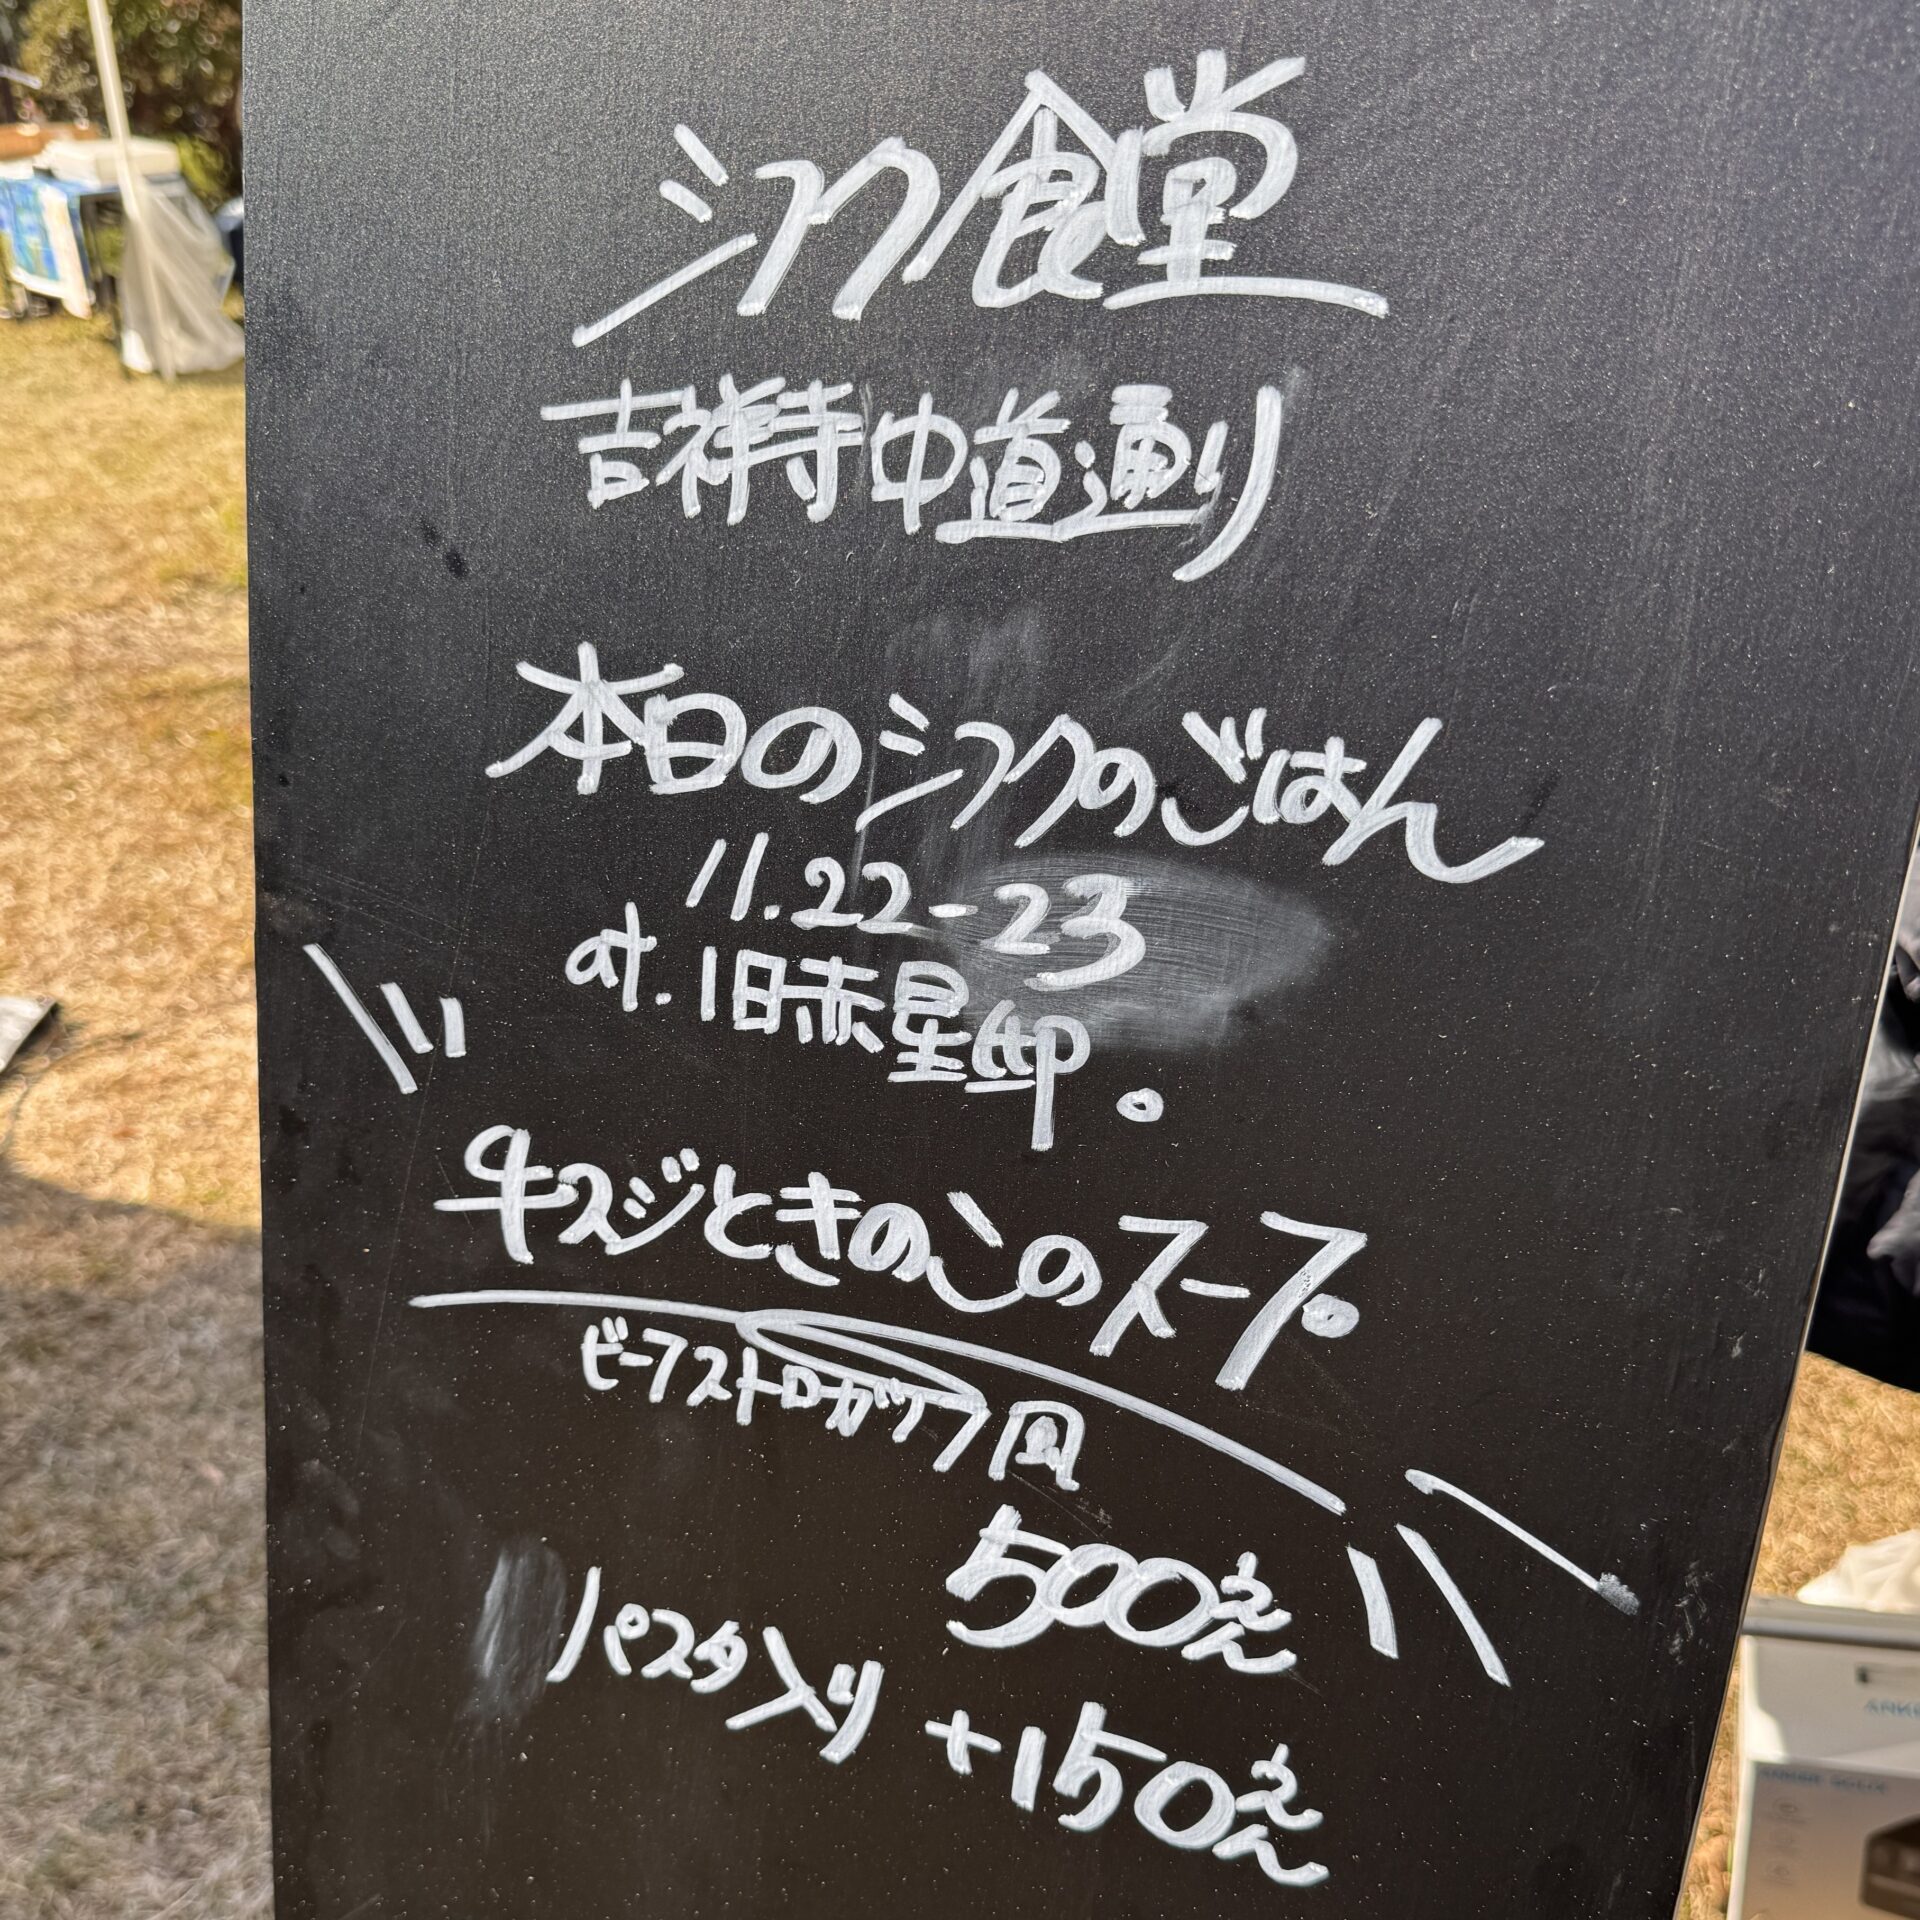 シフク食堂
吉祥寺中道通り
本日のシフクのごはん
11.22-23
at.旧赤星邸。
牛スジときのこのスープ
ビーフストロガノフ風
500えん
パスタ入り +150えん
ANKER SOLIX